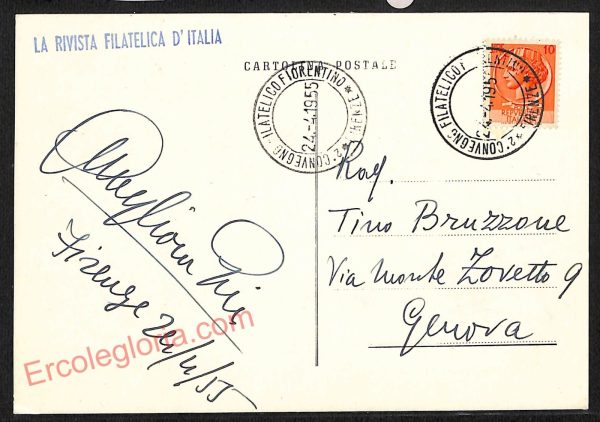 LA RIVISTA FILATELICA D'ITALIA
CARTOLINA POSTALE
2° CONVEGNO FILATELICO FIORENTINO * FIRENZE *
24.-4.1955
2° CONVEGNO FILATELICO FIORENTINO * FIRENZE *
24.-4.195
10
Rag.
Tino Bruzzone
Via Monte Zovetto 9
Genova
Firenze 24/4/55
Ercolegloria.com